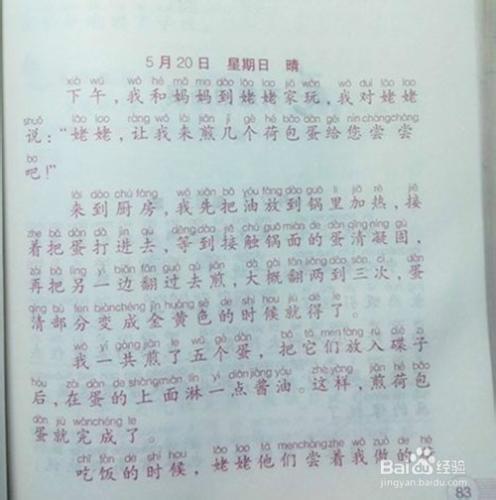 5月20日 星期日 晴
xià wǔ wǒ hé mā ma dào lǎo lao jiā wán wǒ duì lǎo lao
下午，我和妈妈到姥姥家玩，我对姥姥
shuō lǎo lao ràng wǒ lái jiān jǐ gè hé bāo dàn gěi nín chángchang
说：“姥姥，让我来煎几个荷包蛋给您尝尝
ba
吧！”
lái dào chú fáng wǒ xiān bǎ yóu fàng dào guō lǐ jiā rè jiē
来到厨房，我先把油放到锅里加热，接
zhe bǎ dàn dǎ jìn qù děng dào jiē chù guō miàn de dàn qīng níng gù
着把蛋打进去，等到接触锅面的蛋清凝固，
zài bǎ lìng yì biān fān guò qù jiān dà gài fān liǎng dào sān cì dàn
再把另一边翻过去煎，大概翻两到三次，蛋
qīng bù fen biànchéng jīn huáng sè de shí hou jiù dé le
清部分变成金黄色的时候就得了。
wǒ yí gòng jiān le wǔ gè dàn bǎ tā men fàng rù dié zi
我一共煎了五个蛋，把它们放入碟子
hòu zài dàn de shàngmiàn lín yì diǎn jiàng yóu zhè yàng jiān hé bāo
后，在蛋的上面淋一点酱油。这样，煎荷包
dàn jiù wánchéng le
蛋就完成了。
chī fàn de shí hou lǎo lao tā menchángzhe wǒ zuò de hé
吃饭的时候，姥姥他们尝着我做的
83
Bai du 经验
jingyan.baidu.com